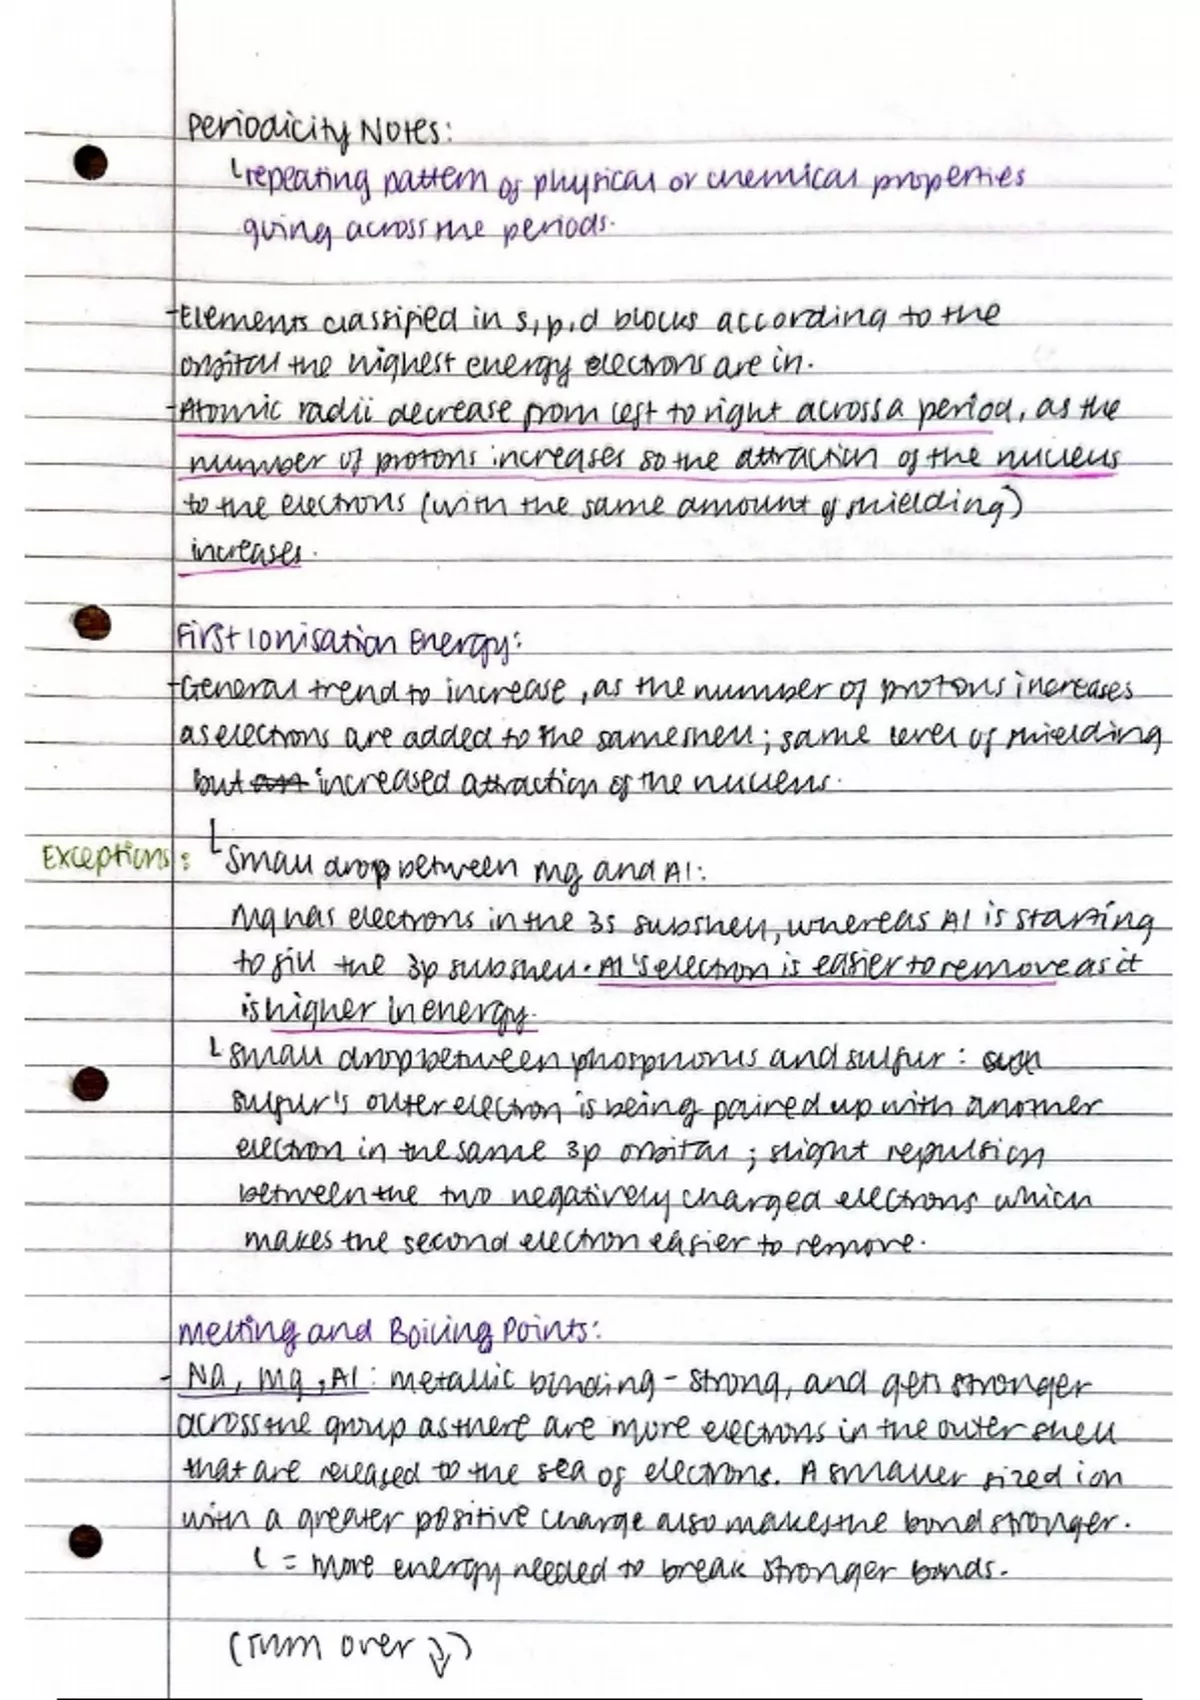 Periodicity Notes:
repeating pattern of physical or chemical properties
going across the periods.
-Elements classified in s,p,d blocks according to the
orbital the highest energy electrons are in.
-Atomic radii decrease from left to right across a period, as the
number of protons increases so the attraction of the nucleus
to the electrons (with the same amount of shielding)
increases.
First Ionisation Energy:
-General trend to increase, as the number of protons increases
as electrons are added to the same shell; same level of shielding
but increased attraction of the nucleus.
Exceptions: Small drop between Mg and Al:
Mg has electrons in the 3s subshell, whereas Al is starting
to fill the 3p subshell. Al's electron is easier to remove as it
is higher in energy.
Small drop between phosphorus and sulfur:
sulfur's outer electron is being paired up with another
electron in the same 3p orbital; slight repulsion
between the two negatively charged electrons which
makes the second electron easier to remove.
Melting and Boiling Points:
- Na, Mg, Al: metallic bonding - strong, and gets stronger
across the group as there are more electrons in the outer shell
that are released to the sea of electrons. A smaller sized ion
with a greater positive charge also makes the bond stronger.
= more energy needed to break stronger bonds.
(Turn over ↓)